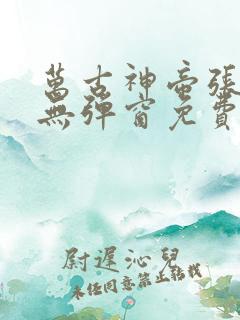 萬古神帝張
無彈窗免費
尉遲沁兒
未經同意禁止轉載